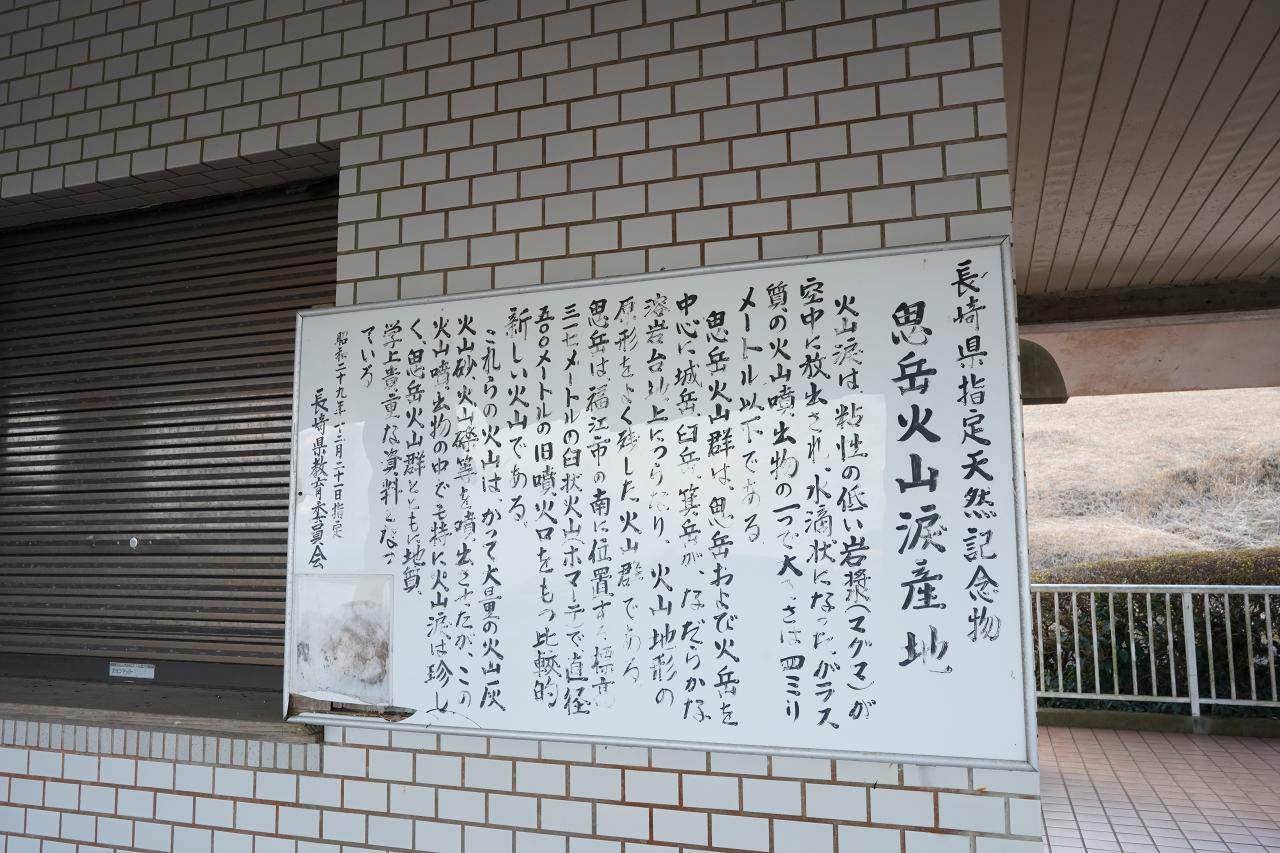 長崎県指定天然記念物
鬼岳火山涙産地
火山涙は、粘性の低い岩漿(マグマ)が
空中に放出され、水滴状になったガラス
質の火山噴出物の一つで大きさは四ミリ
メートル以下である
鬼岳火山群は、鬼岳および火岳を
中心に城岳、臼岳、箕岳が、なだらかな
溶岩台地上につらなり、火山地形の
原形をよく残した火山群である
鬼岳は福江市の南に位置する標高
三一七メートルの臼状火山(ホマーテ)で直径
五〇〇メートルの旧噴火口をもつ比較的
新しい火山である。
これらの火山は、かつて大量の火山灰
火山砂、火山礫等を噴出させたが、この
火山噴出物の中でも特に火山涙は珍し
く、鬼岳火山群とともに地質
学上貴重な資料となっ
ている
昭和二十九年十二月二十一日指定
長崎県教育委員会